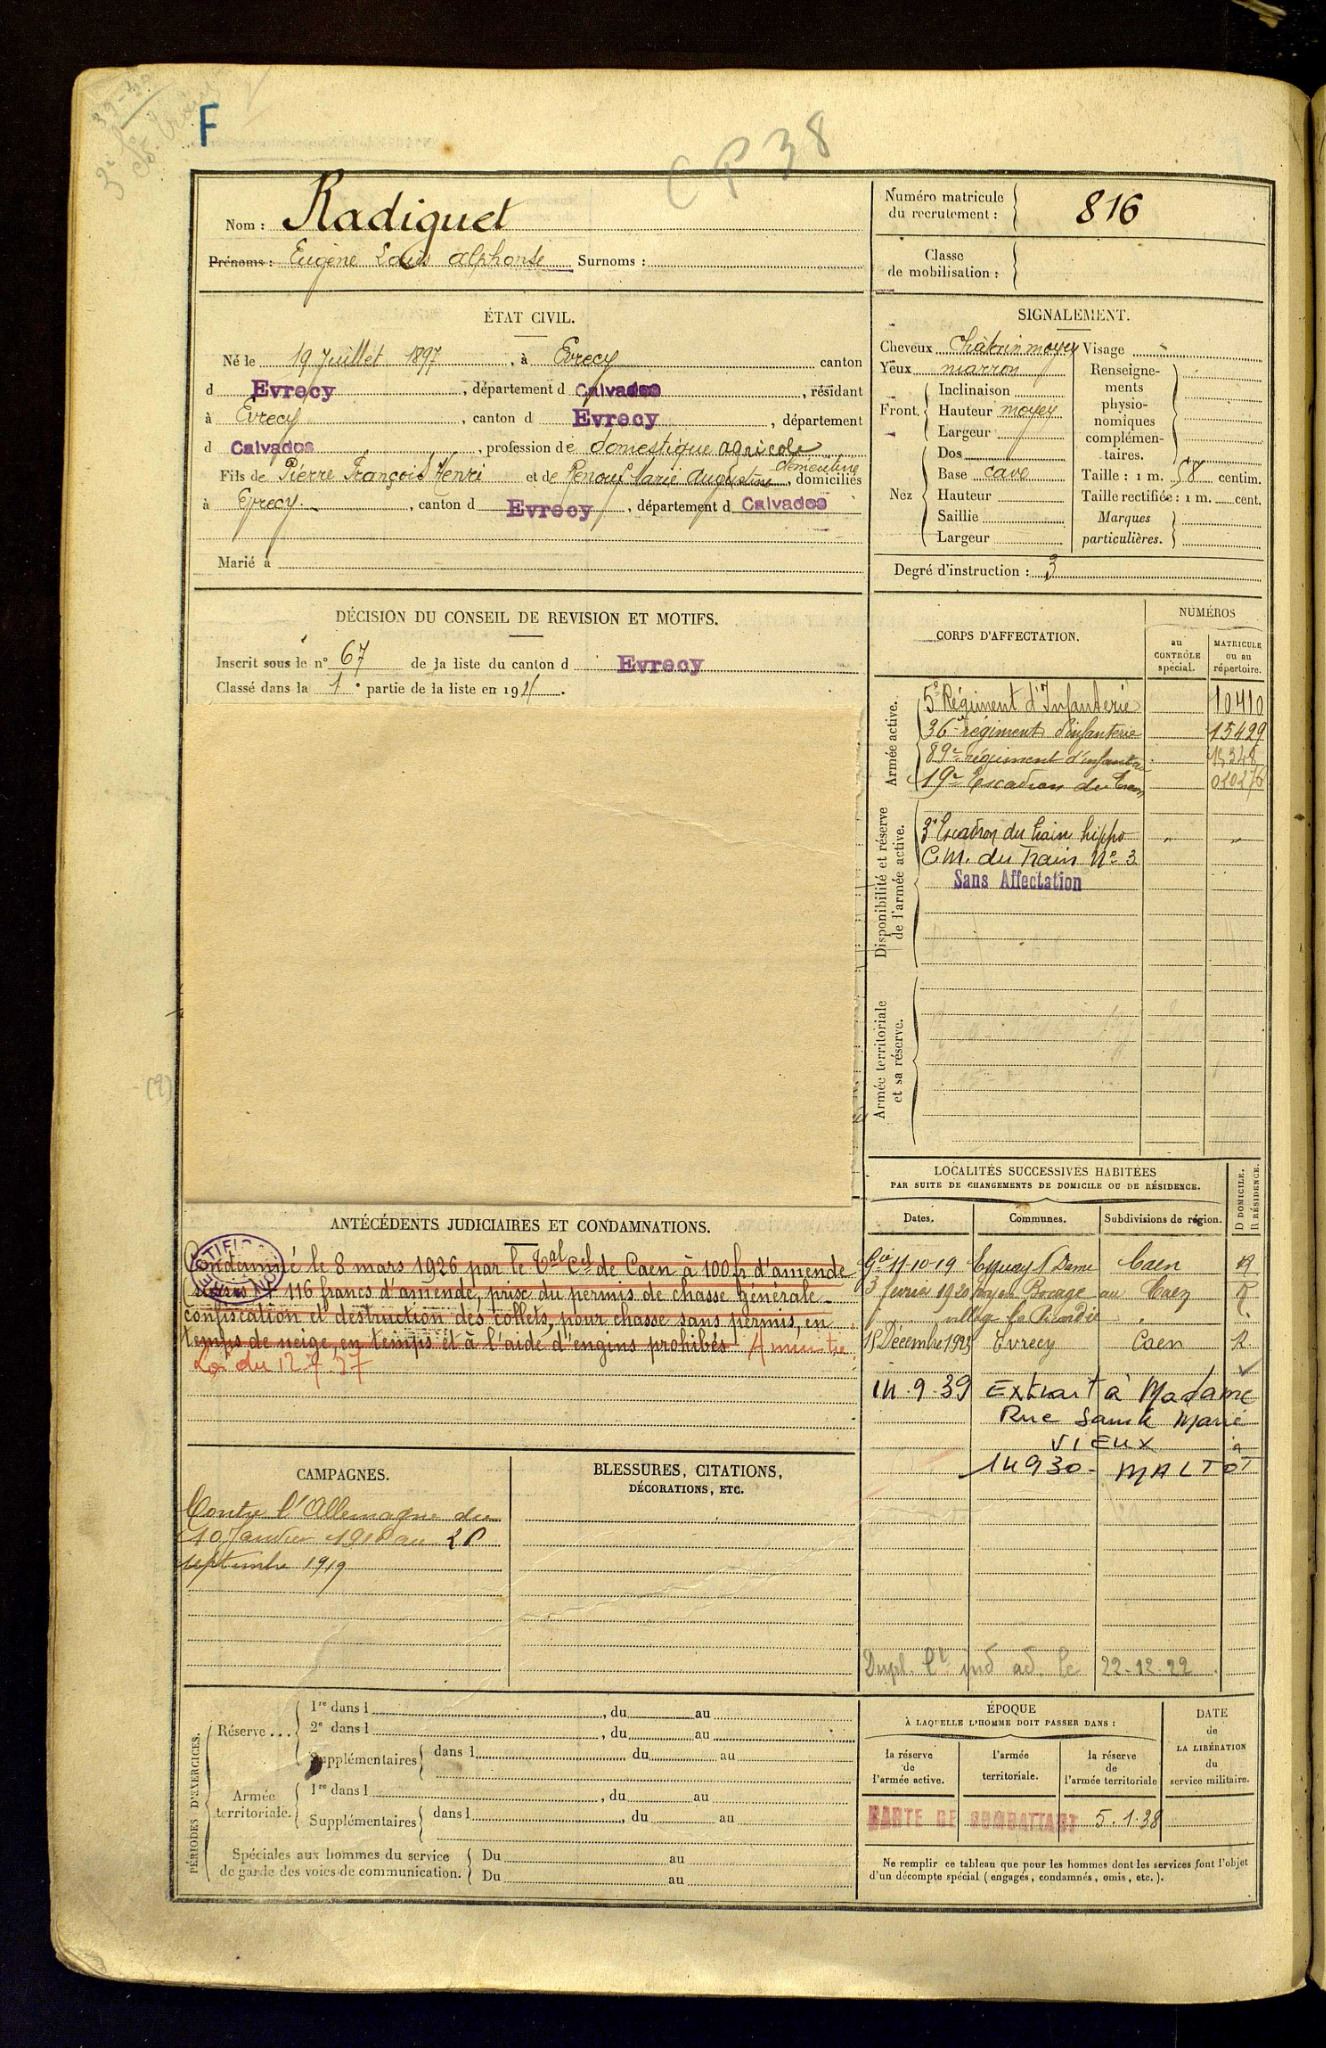 F
CP 38
Nom : Radiguet
Prénoms : Eugène Louis Alphonse Surnoms :
Numéro matricule du recrutement : 816
Classe de mobilisation :
ÉTAT CIVIL.
Né le 19 Juillet 1897, à Evrecy canton
d Evrecy, département d Calvados, résidant
à Evrecy, canton d Evrecy, département
d Calvados, profession de domestique agricole
Fils de Pierre François Henri et de Renouf Marie Augustine, domiciliés
à Evrecy, canton d Evrecy, département d Calvados
Marié à
SIGNALEMENT.
Cheveux Chatain moyen Visage
Yeux marron
Front. Inclinaison
Hauteur moyen
Largeur
Nez Dos
Base cave
Hauteur
Saillie
Largeur
Renseignements physionomiques complémentaires.
Taille : 1 m. 58 centim.
Taille rectifiée : 1 m. cent.
Marques particulières.
Degré d'instruction : 3
DÉCISION DU CONSEIL DE REVISION ET MOTIFS.
Inscrit sous le n° 67 de la liste du canton d Evrecy
Classé dans la 1e partie de la liste en 191
CORPS D'AFFECTATION.
NUMÉROS
au CONTRÔLE spécial.
MATRICULE ou au répertoire.
Armée active.
5e Régiment d'Infanterie 10410
36e régiment d'infanterie 15429
89e régiment d'infanterie
19e Escadron du Train
Disponibilité et réserve de l'armée active.
3e Escadron du train hippo
C.M. du Train N° 3
Sans Affectation
Armée territoriale et sa réserve.
ANTÉCÉDENTS JUDICIAIRES ET CONDAMNATIONS.
Condamné le 8 mars 1926 par le Tal Cel de Caen à 100 fr d'amende
116 francs d'amende, prise du permis de chasse générale
confiscation et destruction des collets, pour chasse sans permis, en
temps de neige, en temps et à l'aide d'engins prohibés Amnistie
Loi du 12.7.37
LOCALITÉS SUCCESSIVES HABITÉES
PAR SUITE DE CHANGEMENTS DE DOMICILE OU DE RÉSIDENCE.
Dates. Communes. Subdivisions de région.
D DOMICILE. R RÉSIDENCE.
11-10-19 Esquay N Dame Caen R
3 février 1920 Noyers Bocage Caen R
village
15 Décembre 1923 Evrecy Caen R.
14.9.39 Extrait à Madame
Rue Sainte Marie
VIEUX
14930 - MALTOT
CAMPAGNES.
Contre l'Allemagne du
10 Janvier 1916 au 28
septembre 1919
BLESSURES, CITATIONS,
DÉCORATIONS, ETC.
22-12-22
PÉRIODES D'EXERCICES.
Réserve... 1re dans l , du au
2e dans l , du au
Supplémentaires dans l , du au
Armée territoriale. 1re dans l , du au
Supplémentaires dans l , du au
Spéciales aux hommes du service de garde des voies de communication. Du au
Du au
ÉPOQUE
À LAQUELLE L'HOMME DOIT PASSER DANS :
la réserve de l'armée active.
l'armée territoriale.
la réserve de l'armée territoriale
DATE de LA LIBÉRATION du service militaire.
CARTE DE COMBATTANT 5.1.38
Ne remplir ce tableau que pour les hommes dont les services font l'objet
d'un décompte spécial (engagés, condamnés, omis, etc.).